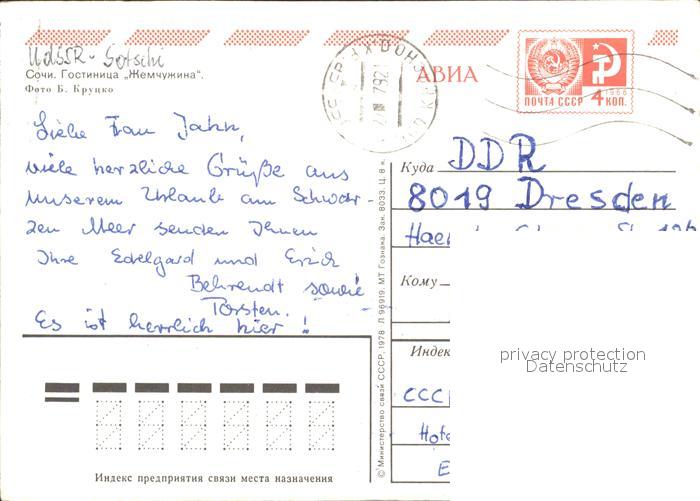 UdSSR - Sotschi
Сочи. Гостиница „Жемчужина".
Фото Б. Круцко
АВИА
ПОЧТА СССР 4 КОП.
1966
Liebe Frau Jahn,
viele herzliche Grüße aus
unserem Urlaub am Schwar-
zen Meer senden Ihnen
Ihre Edelgard und Erich
Behrendt sowie
Torsten.
Es ist herrlich hier!
Куда DDR
8019 Dresden
Кому
Индек
СССР
Hote
privacy protection
Datenschutz
© Министерство связи СССР, 1978 Л 96919. МТ Гознака. Зак. 8033. Ц. 8 к.
Индекс предприятия связи места назначения